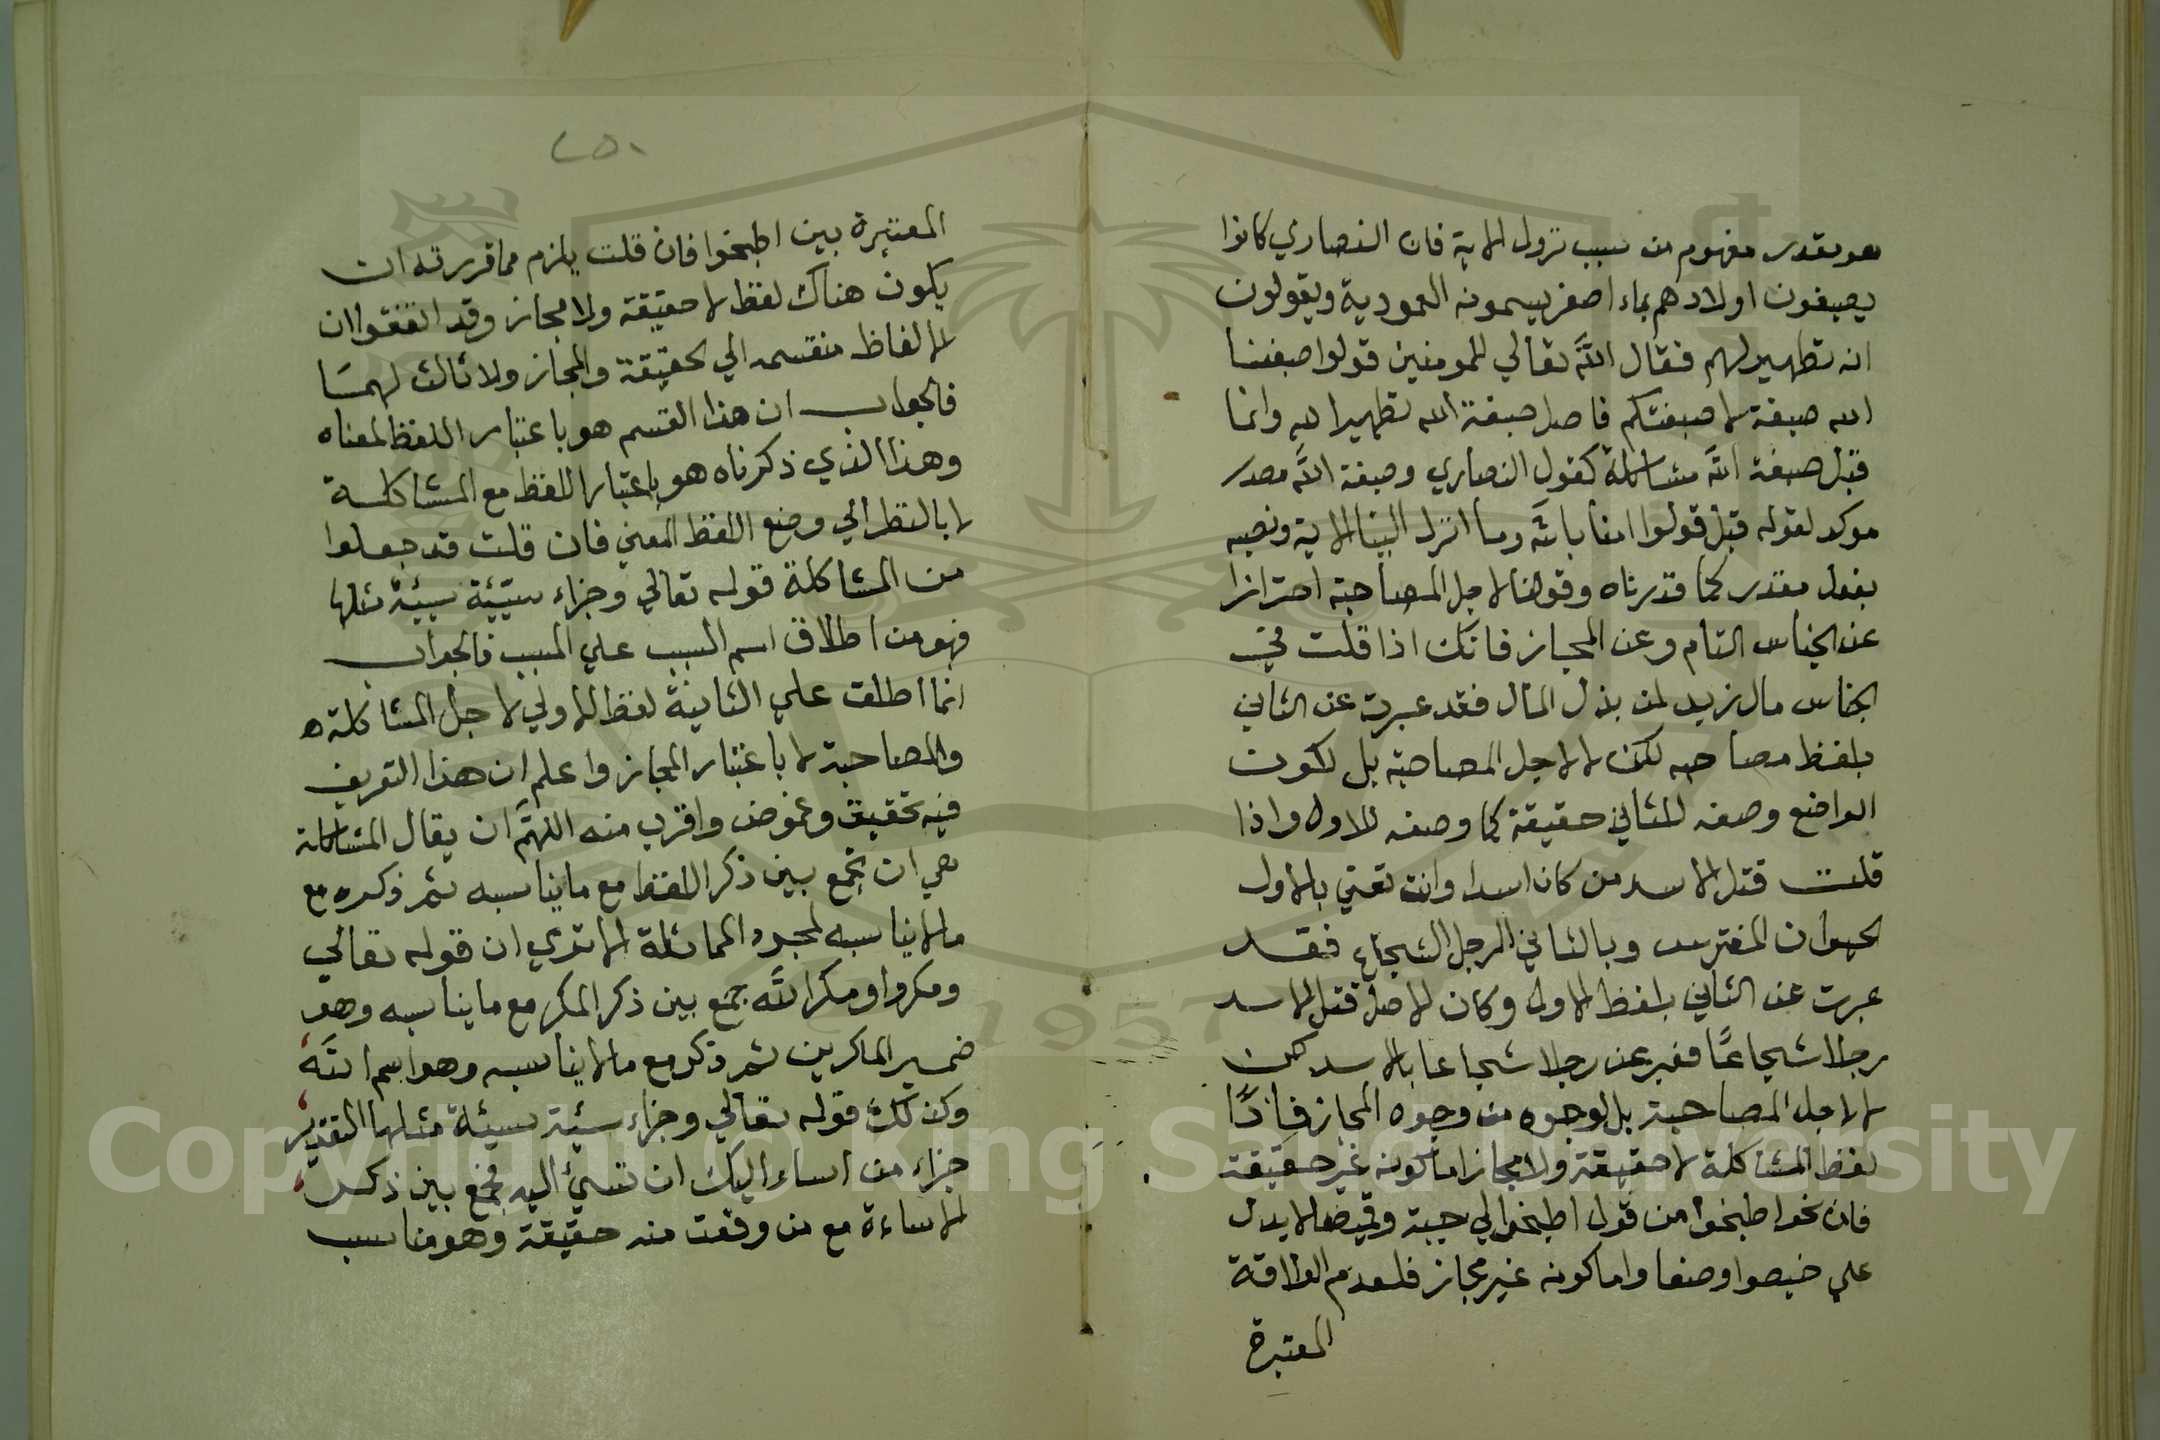 هو مقدر مفهوم من سبب نزول الاية فان النصاري كانوا
يصبغون اولادهم بماء اصفر يسمونه العمودية ويقولون
انه تطهير لهم فقال الله تعالي للمومنين قولوا صبغنا
الله صبغة لا صبغتكم فاصل صبغة الله تطهير الله وانما
قبل صبغة الله مشاكلة كقول النصاري وصبغة الله مصدر
موكد لقوله قبل قولوا امنا بالله وما انزل الينا الاية ونصبه
بفعل مقدر كما قدرناه وقولنا لاجل المصاحبة احترازا
عن الجناس التام وعن المجاز فانك اذا قلت في
الجناس مال زيد لمن بذل المال فقد عبرت عن الثاني
بلفظ مصاحبه لكن لا لاجل المصاحبة بل لكون
الواضع وصفه للثاني حقيقة كما وصفه للاول واذا
قلت قتل الاسد من كان اسدا وانت تعني بالاول
الحيوان المفترس وبالثاني الرجل الشجاع فقد
عبرت عن الثاني بلفظ الاول وكان الاصل قتل الاسد
رجلا شجاعًا فعبر عن رجلا شجاعا بالاسد لكن
لا لاجل المصاحبة بل لوجوه من وجوه المجاز فاذًا
لفظ المشاكلة لا حقيقة ولا مجاز اما كونه غير حقيقة
فان نحوا طبخوا من قول اطبخوا لي جبة وقميصا لا يدل
علي خيصوا وصفا واما كونه غير مجاز فلعدم العلاقة
المعتبرة
٢٥١
المعتبرة بين اطبخوا فان قلت يلزم مما قررته ان
يكون هناك لفظ لا حقيقة ولا مجاز وقد اتفقوا ان
الالفاظ منقسمه الي الحقيقة والمجاز ولا ثالث لهمَا
فالجواب ان هذا القسم هو باعتبار اللفظ لمعناه
وهذا الذي ذكرناه هو باعتبار اللفظ مع المشاكلة
لا بالنظر الي وضع اللفظ المعني فان قلت قد جعلوا
من المشاكلة قوله تعالي وجزاء سيئة سيئة مثلها
فهو من اطلاق اسم السبب علي المسبب فالجواب
انما اطلق علي الثانية لفظ الاولي لاجل المشاكلة ه
والمصاحبة لا باعتبار المجاز واعلم ان هذا التعريف
فيه تحقيق وغموض واقرب منه اللهمَّ ان يقال المشاكلة
هي ان تجمع بين ذكر اللفظ مع ما يناسبه ثم ذكره مع
ما لا يناسبه لمجرد المماثلة الا تري ان قوله تعالي
ومكروا ومكر الله جمع بين ذكر المكر مع ما يناسبه وهو
ضمير الماكرين ثم ذكر مع ما لا يناسبه وهو اسم الله
وكذلك قوله تعالي وجزاء سيئة سيئة مثلها التقدير
جزاء من اساء اليك ان تسئ اليه فجمع بين ذكر
الاساءة مع من وقعت منه حقيقة وهو مناسب
1957
Copyright © King Saud University